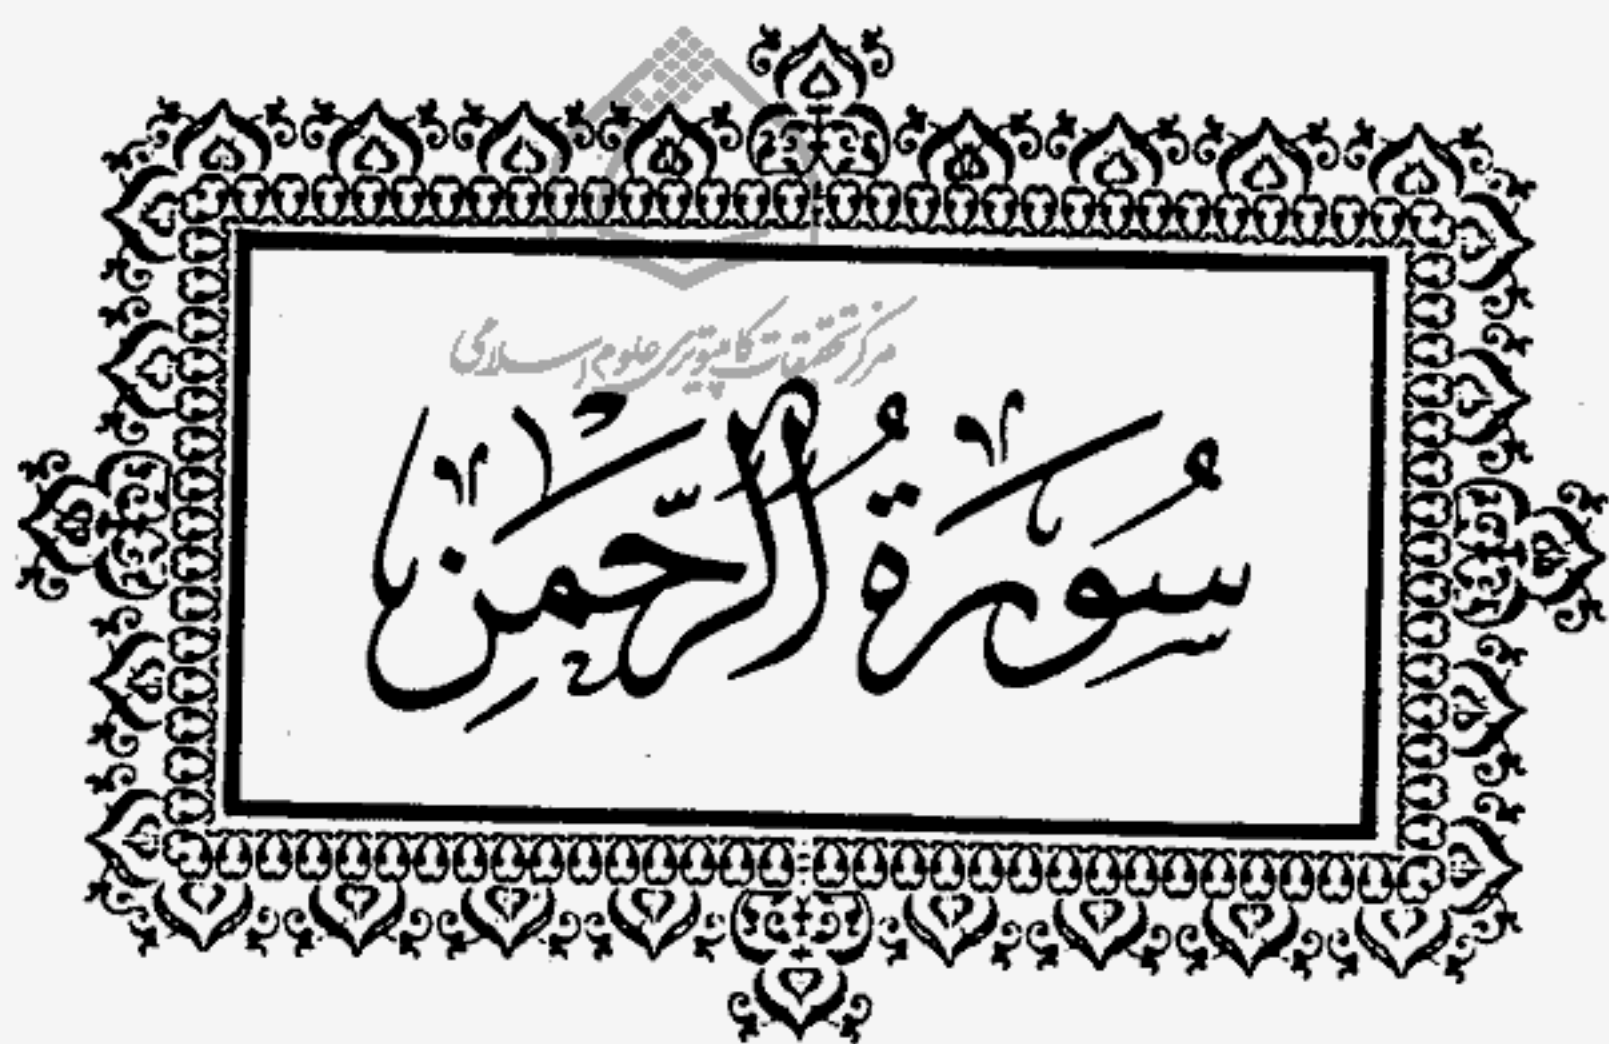 مرکز تحقیقات کامپیوتری علوم اسلامی
سُورَةُ الرَّحْمَنِ